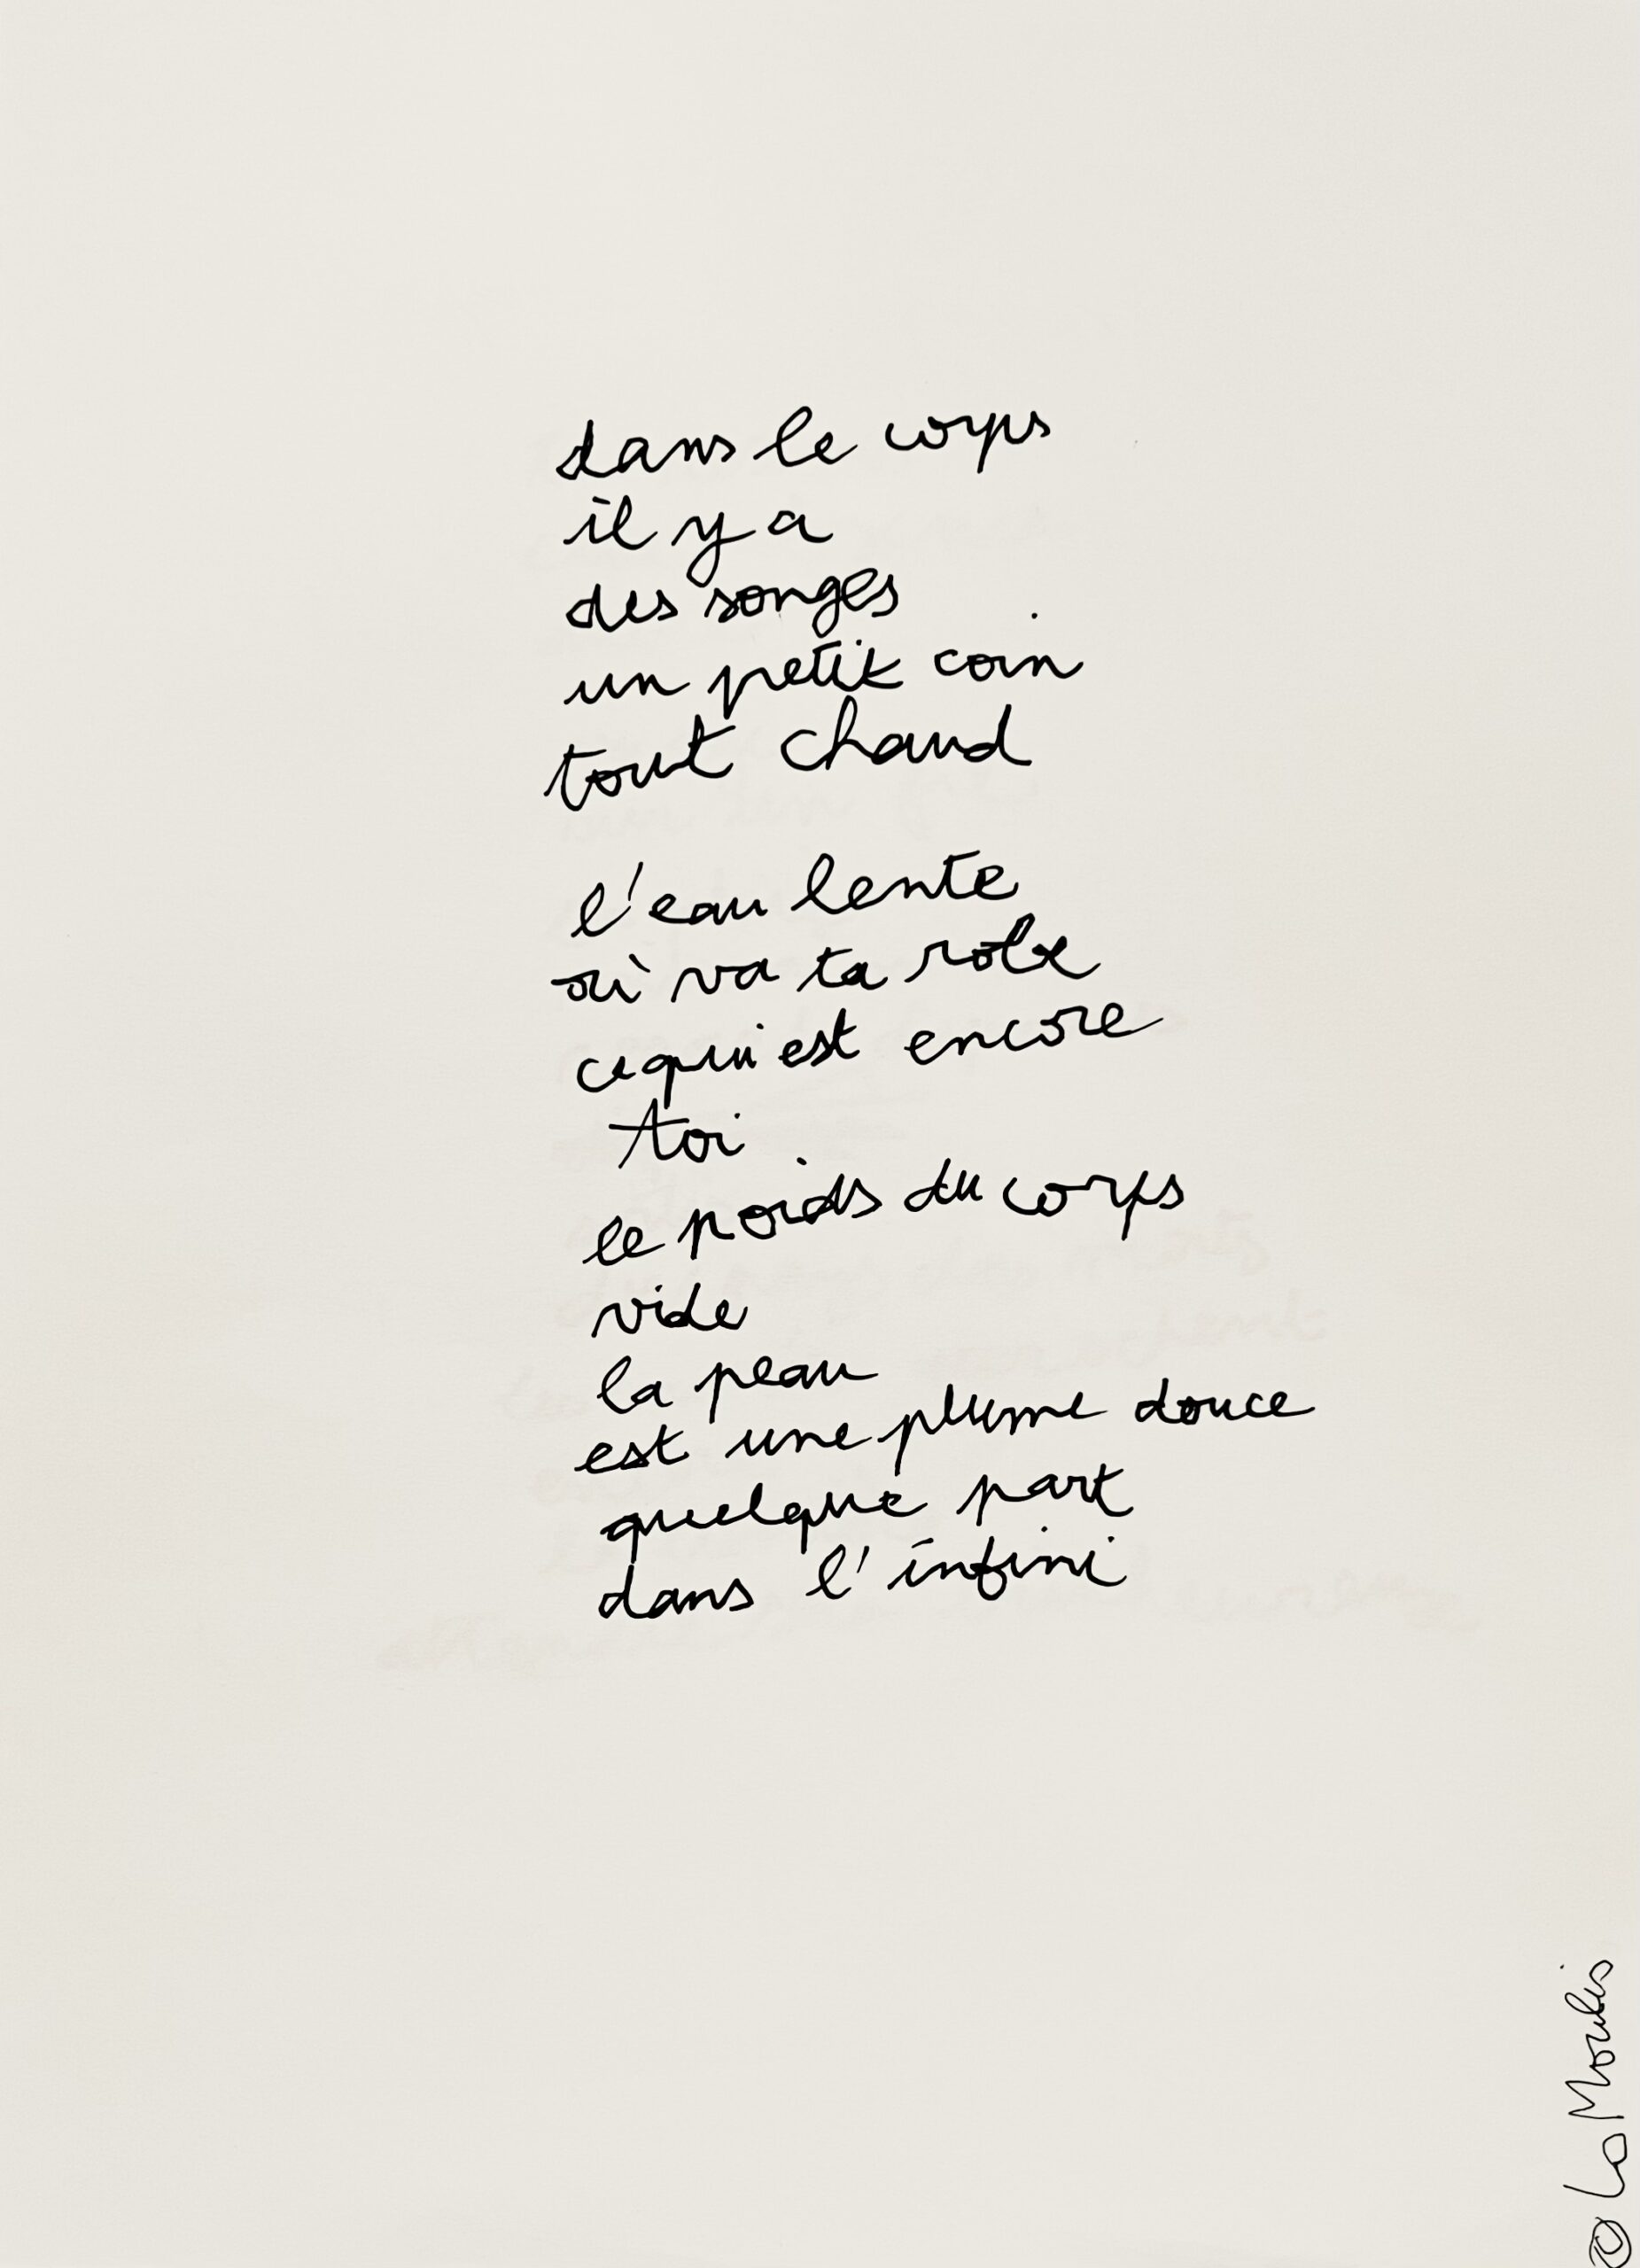 dans le corps
il y a
des songes
un petit coin
tout chaud
l'eau lente
où va ta robe
ce qui est encore
toi
le poids du corps
vide
la peau
est une plume douce
quelque part
dans l'infini
@ Lo Moulis